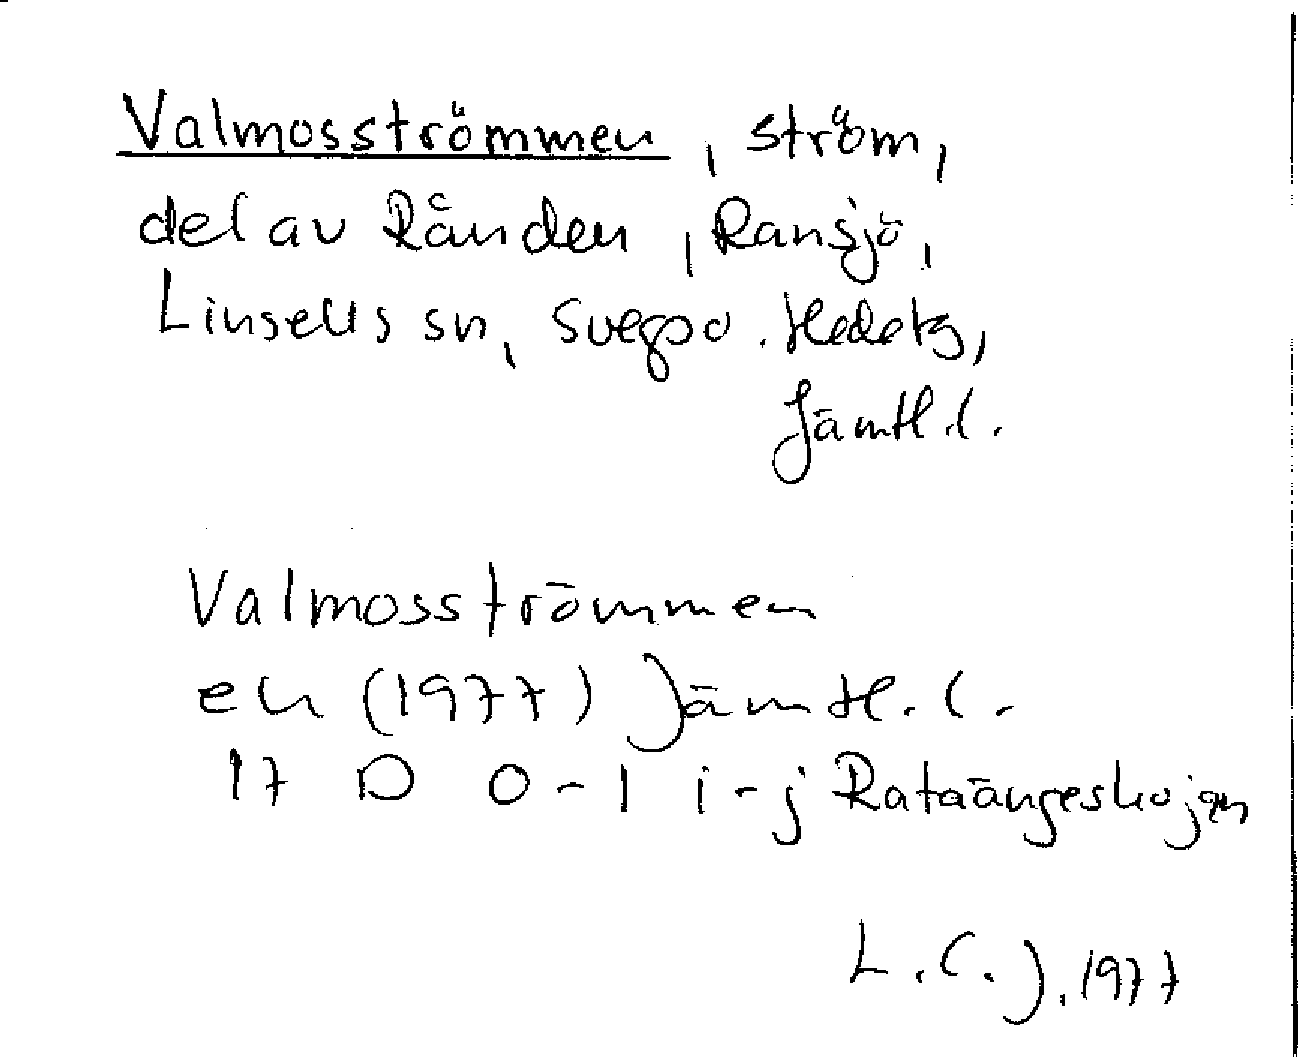 Valmosströmmen, ström,
del av Rånden, Ransjö,
Linsells sn, Svegs o. Hede tg,
Jämtl. l.
Valmosströmmen
ek (1977) Jämtl. l.
17 D 0-1 i-j Rataängeskojan
L.C.J. 1977